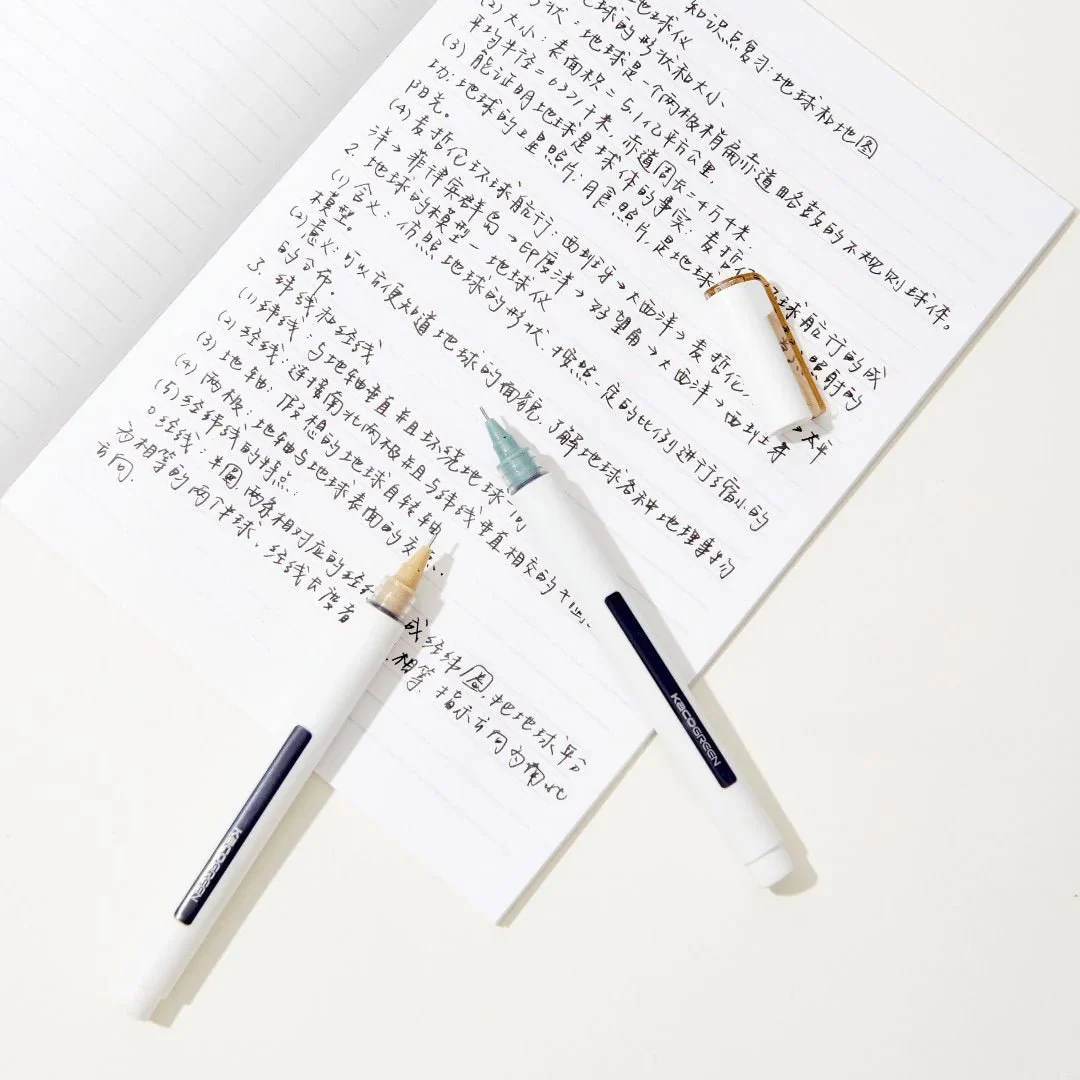 知识点复习：地球和地图
地球仪
球的形状和大小
状：地球是一个两极稍扁赤道略鼓的不规则球体。
(2) 大小：表面积=5.1亿平方公里，
平均半径=6371千米，赤道周长=4万千米
(3) 能证明地球是球体的事实：麦哲伦 球航行的成
功；地球的卫星照片；月食照片，是地球 照射的
阳光。
(4) 麦哲伦环球航行：西班牙→大西洋→麦哲伦 →太平
洋→菲律宾群岛→印度洋→好望角→大西洋→西班牙
2. 地球的模型—地球仪
(1) 含义：仿照地球的形状，按照一定的比例进行缩小的
模型。
(2) 意义：可以方便知道地球的面貌，了解地球各种地理事物
的分布。
3. 纬线和经线
(1) 纬线：与地轴垂直并且环绕地球一
(2) 经线：连接南北两极并且与纬线垂直相交的
(3) 地轴：假想的地球自转轴
(4) 两极：地轴与地球表面的交
(5) 经纬线的特点：
经线：半圆 两条相对应的经线 成经纬圈，把地球平分
为相等的两个半球，经线长度 相等，指示方向为南北
方向.
KACOGREEN
KACOGREEN